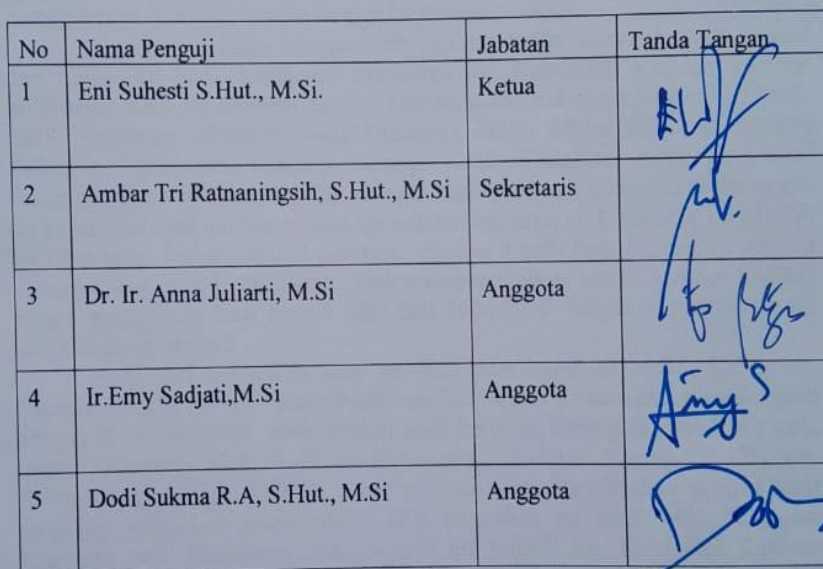 No Nama Penguji Jabatan Tanda Tangan
1 Eni Suhesti S.Hut., M.Si. Ketua
2 Ambar Tri Ratnaningsih, S.Hut., M.Si Sekretaris
3 Dr. Ir. Anna Juliarti, M.Si Anggota
4 Ir.Emy Sadjati,M.Si Anggota
5 Dodi Sukma R.A, S.Hut., M.Si Anggota